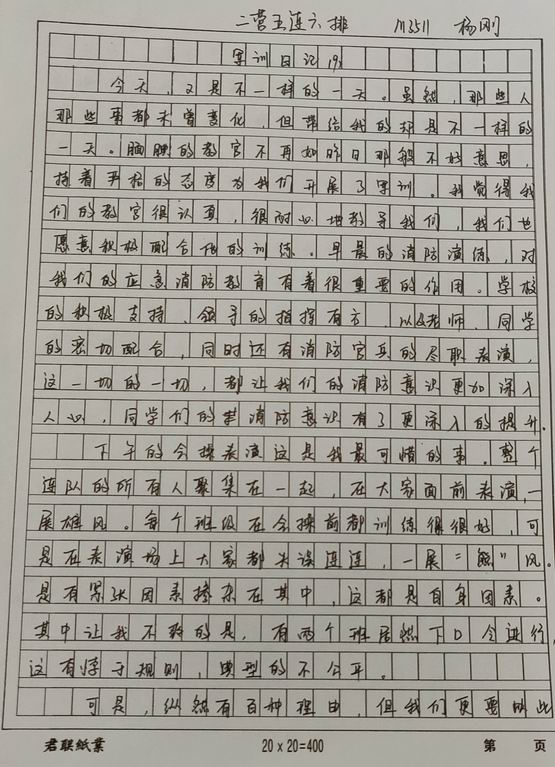 二营五连六排 M3511 杨刚
军训日记(9)
今天,又是不一样的一天。虽然,那些人
那些事都未曾变化,但带给我的却是不一样的
一天。腼腆的教官不再如昨日那般不好意思,
持着严格的态度为我们开展了军训。我觉得我
们的教官很认真,很耐心地教导我们,我们也
愿意积极配合他的训练。早晨的消防演练,对
我们的应急消防教育有着很重要的作用。学校
的积极支持、领导的指挥有方、以及老师、同学
的密切配合,同时还有消防官兵的尽职表演,
这一切的一切,都让我们的消防意识更加深入
人心,同学们的消防意识有了更深入的提升。
下午的会操表演这是我最可惜的事。整个
连队的所有人聚集在一起,在大家面前表演,一
展雄风。每个班级在会操前都训练得很好,可
是在表演场上大家都失误连连,一展“熊”风。
是有紧张因素掺杂在其中,这都是自身因素。
其中让我不称的是,有两个班居然下口令进行,
这有悖于规则,典型的不公平。
可是,纵然有百种理由,但我们更要以此
君联纸业 20×20=400 第 页